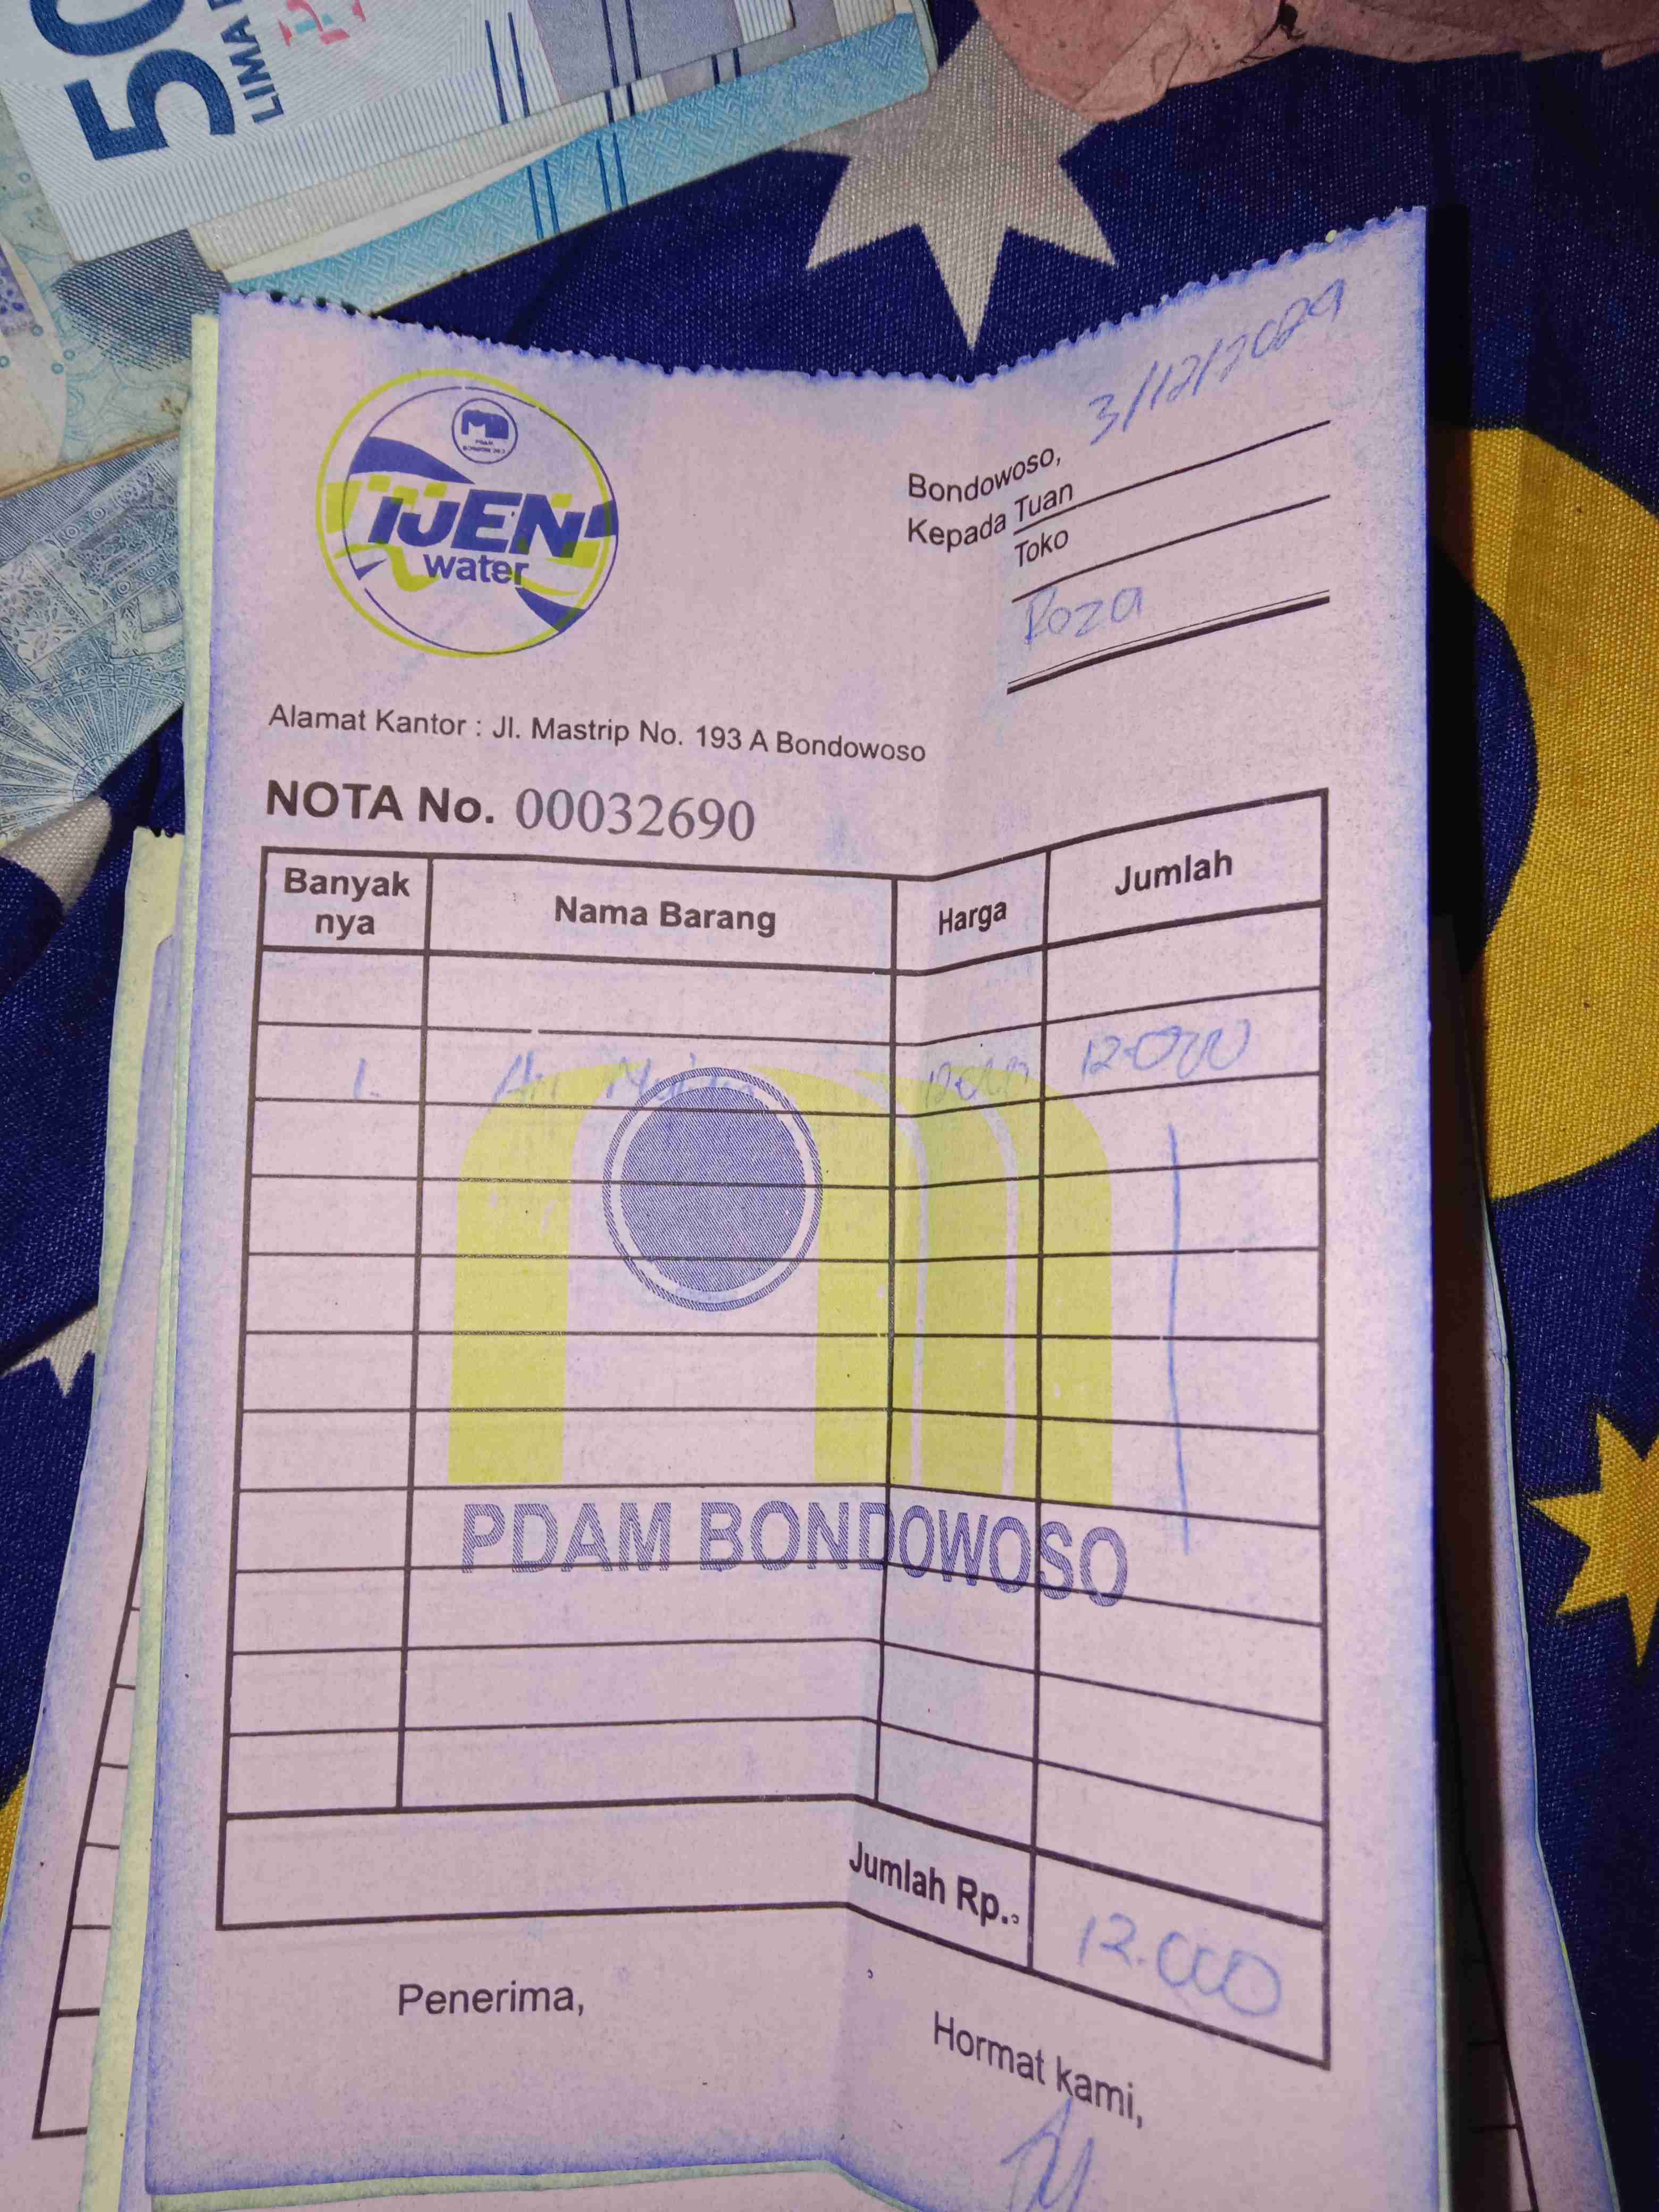 50
LIMA
PDAM
IJEN
water
Bondowoso, 3/12/2024
Kepada Tuan
Toko
Roza
Alamat Kantor : Jl. Mastrip No. 193 A Bondowoso
NOTA No. 00032690
Banyak nya Nama Barang Harga Jumlah
1 Air 12.000 12.000
PDAM BONDOWOSO
Jumlah Rp. 12.000
Penerima,
Hormat kami,